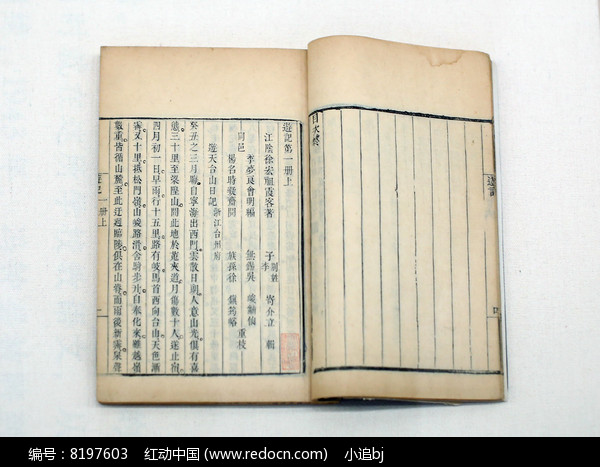 目次終
遊記
遊記第一册上
江陰徐宏祖霞客著
子 李寄介立輯
同邑
季夢良會明編
楊名時凝齋閱
族孫徐鎮筠峪重校
遊天台山日記 浙江台州府
癸丑之三月晦自寧海出西門雲散日朗人意山光俱有喜
態三十里至梁隍山聞此地於菟夾道月傷數十人遂止宿
四月初一日早雨行十五里路有岐馬首西向台山天色漸
霽又十里抵松門嶺山峻路滑舍騎步行自奉化來雖越嶺
數重皆循山麓至此迂迴臨陟俱在山脊而雨後新霽泉聲
遊記一册上
编号：8197603 红动中国 (www.redocn.com) 小追bj